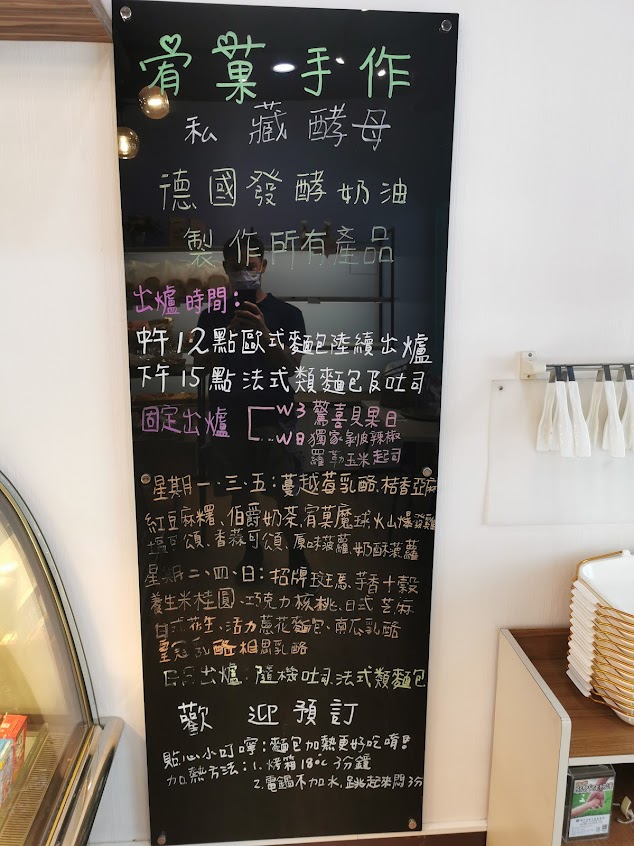 宥菓手作
私藏酵母
德國發酵奶油
製作所有產品
出爐時間：
中午12點歐式麵包陸續出爐
下午15點法式類麵包及吐司
固定出爐
W3驚喜貝果日
W日獨家剝皮辣椒
羅勒玉米起司
星期一.三.五：蔓越莓乳酪.桔香亞麻
紅豆麻糬、伯爵奶茶、宥菓魔球、火山爆發雞
塩可頌、香蒜可頌、原味菠蘿、奶酥菠蘿
星期二、四、日：招牌斑馬、芋香十穀
養生米桂圓、巧克力核桃、日式芝麻
日式花生、活力蔥花麵包、南瓜乳酪
皇冠乳酪相思乳酪
出爐：隨機吐司法式類麵包
歡迎預訂
貼心小叮嚀：麵包加熱更好吃唷!!
加熱方法：1.烤箱18°c 3分鐘
2.電鍋不加水,跳起來悶3分